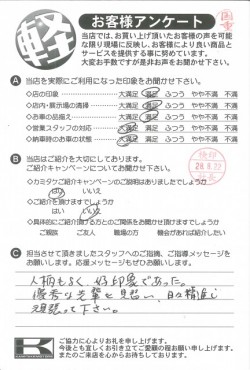 軽
お客様アンケート
当店では、お買い上げ頂いたお客様の声を可能
な限り現場に反映し、お客様により良い商品と
サービスを提供する事に努めています。
大変お手数ですが是非お声をお聞かせ下さい。
A 当店を実際にご利用になった印象をお聞かせ下さい。
◇店の印象 大満足 満足 ふつう やや不満 不満
◇店内・展示場の清掃 大満足 満足 ふつう やや不満 不満
◇お車の品揃え 大満足 満足 ふつう やや不満 不満
◇営業スタッフの対応 大満足 満足 ふつう やや不満 不満
◇納車時のお車の状態 大満足 満足 ふつう やや不満 不満
B 当店はご紹介を大切にしております。
ご紹介キャンペーンについてお聞かせ下さい。
◇カミタケご紹介キャンペーンのご説明はありましたでしょうか
はい いいえ
◇ご紹介を頂けますでしょうか
はい いいえ
◇具体的にご紹介頂ける方とのご関係をお聞かせ頂けますでしょうか
ご親族 ご友人 職場の方 機会があれば紹介したい
C 担当させて頂きましたスタッフへのご指摘、ご指導メッセージを
お願いします。応援メッセージもぜひお願いします。
人柄もよく、好印象であった。
優秀な先輩を見習い、日々精進し
頑張って下さい。
K
ご協力に心よりお礼を申し上げます。
今後とも宜しくお引き立てご愛顧の程お願い申し上げます。
またのご来店を心からお待ちしております。